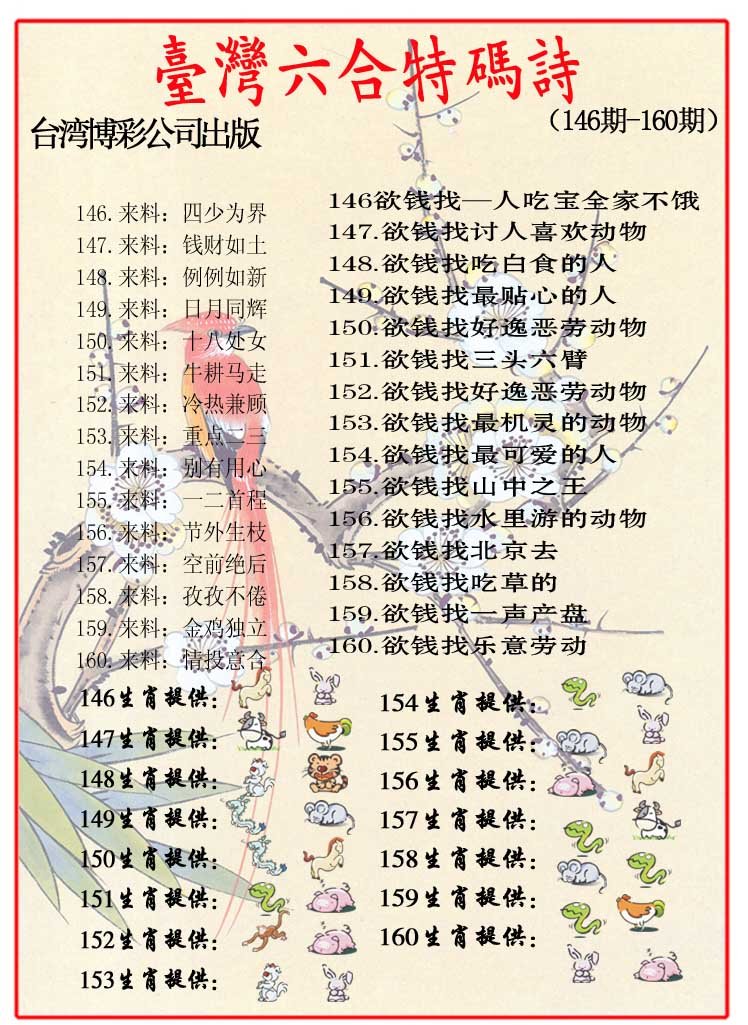 臺灣六合特碼詩
台湾博彩公司出版
（146期-160期）
146.来料：四少为界
147.来料：钱财如土
148.来料：例例如新
149.来料：日月同辉
150.来料：十八处女
151.来料：牛耕马走
152.来料：冷热兼顾
153.来料：重点二三
154.来料：别有用心
155.来料：一二首程
156.来料：节外生枝
157.来料：空前绝后
158.来料：孜孜不倦
159.来料：金鸡独立
160.来料：情投意合
146欲钱找一人吃宝全家不饿
147.欲钱找讨人喜欢动物
148.欲钱找吃白食的人
149.欲钱找最贴心的人
150.欲钱找好逸恶劳动物
151.欲钱找三头六臂
152.欲钱找好逸恶劳动物
153.欲钱找最机灵的动物
154.欲钱找最可爱的人
155.欲钱找山中之王
156.欲钱找水里游的动物
157.欲钱找北京去
158.欲钱找吃草的
159.欲钱找一声产盘
160.欲钱找乐意劳动
146生肖提供：
147生肖提供：
148生肖提供：
149生肖提供：
150生肖提供：
151生肖提供：
152生肖提供：
153生肖提供：
154生肖提供：
155生肖提供：
156生肖提供：
157生肖提供：
158生肖提供：
159生肖提供：
160生肖提供：